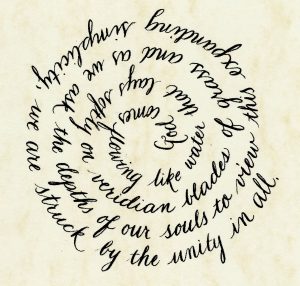 God comes flowing like water that lays softly on veridian blades of grass and as we ask the depths of our souls to view this expanding simplicity, we are struck by the unity in all.